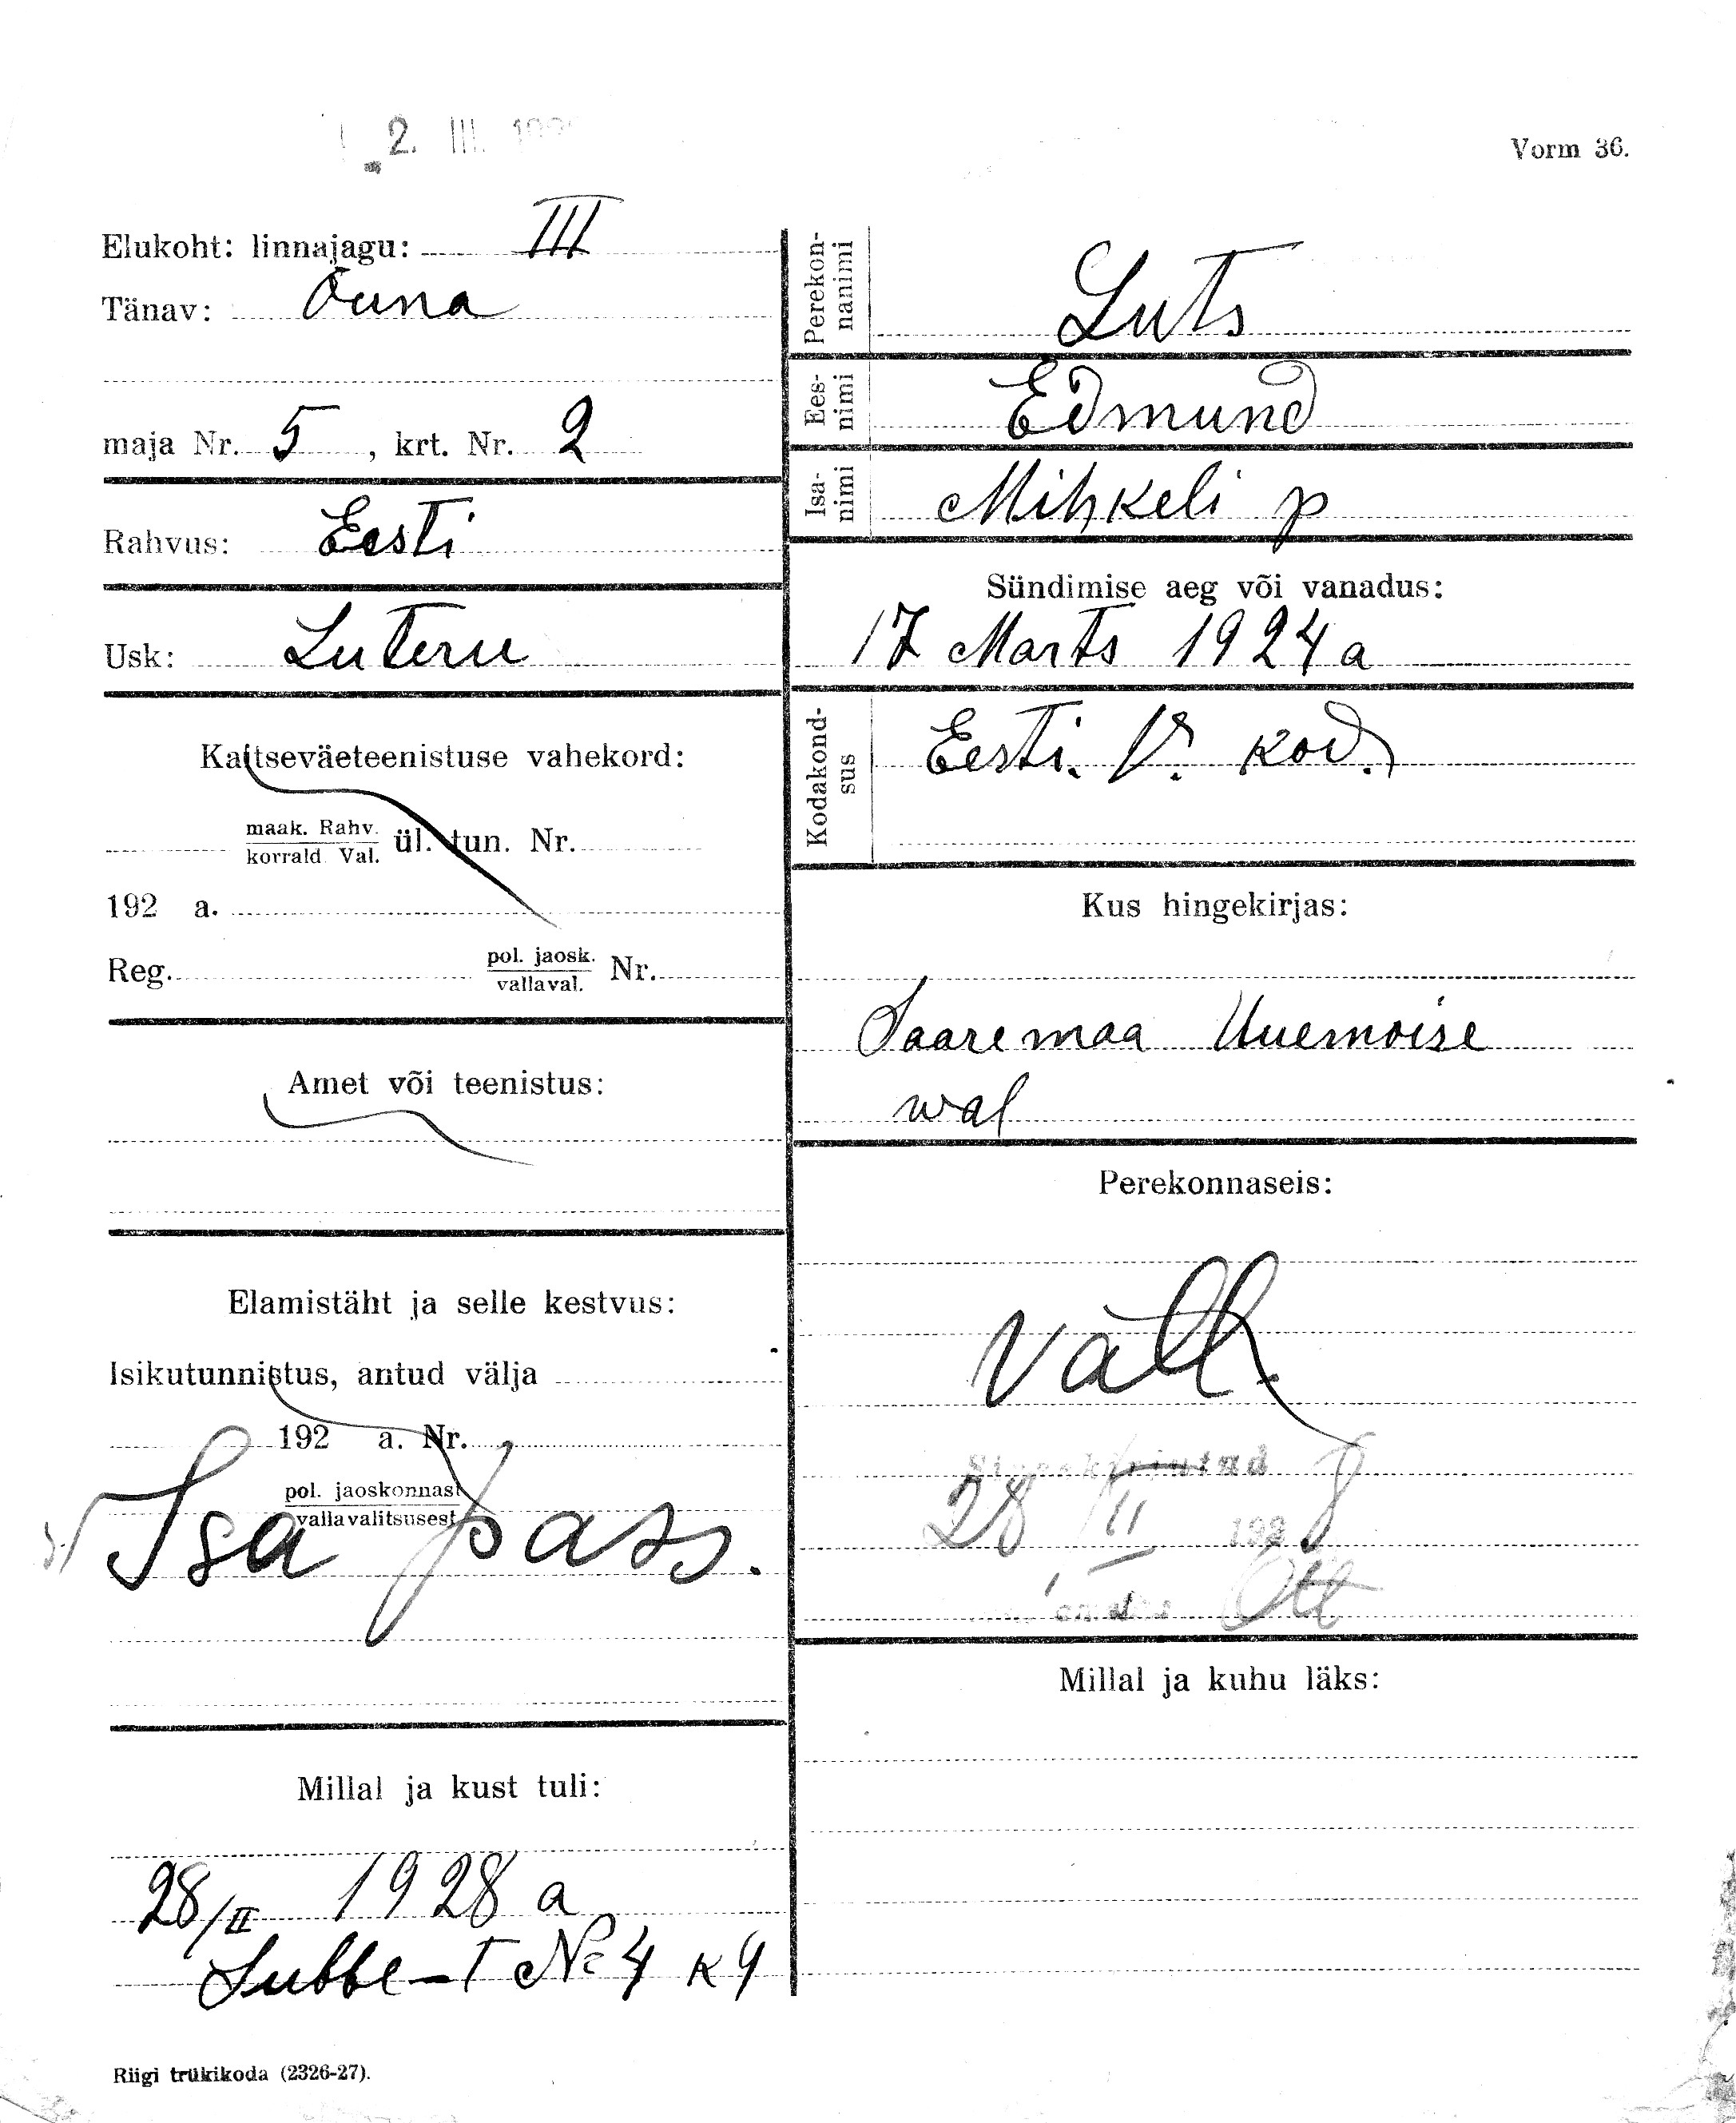 2. III.
Vorm 36.
Elukoht: linnajagu: III
Tänav: Õuna
maja Nr. 5, krt. Nr. 2
Rahvus: Eesti
Usk: Luteru
Kaitseväeteenistuse vahekord:
maak. Rahv.
korrald. Val. ül. tun. Nr.
192 a.
Reg. pol. jaosk.
vallaval. Nr.
Amet või teenistus:
Elamistäht ja selle kestvus:
Isikutunnistus, antud välja
192 a. Nr.
pol. jaoskonnast
vallavalitsusest
Isa pass.
Millal ja kust tuli:
28/II 1928 a
T № 4 K 4
Riigi trükikoda (2326-27).
Perekon-
nanimi
Luts
Ees-
nimi
Edmund
Isa-
nimi
Mihkeli p
Sündimise aeg või vanadus:
17 Marts 1924 a
Kodakond-
sus
Eesti. V. kod.
Kus hingekirjas:
Saaremaa Uuemoise
wal
Perekonnaseis:
vall.
Sissekirjutud
28 II 1928
Ott
Millal ja kuhu läks: